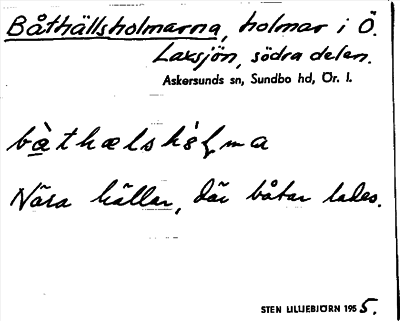 Båthällsholmarna, holmar i Ö.
Laxsjön, södra delen.
Askersunds sn, Sundbo hd, Ör. l.
Nära hällar, där båtar lades.
STEN LILLIEBJÖRN 1955.